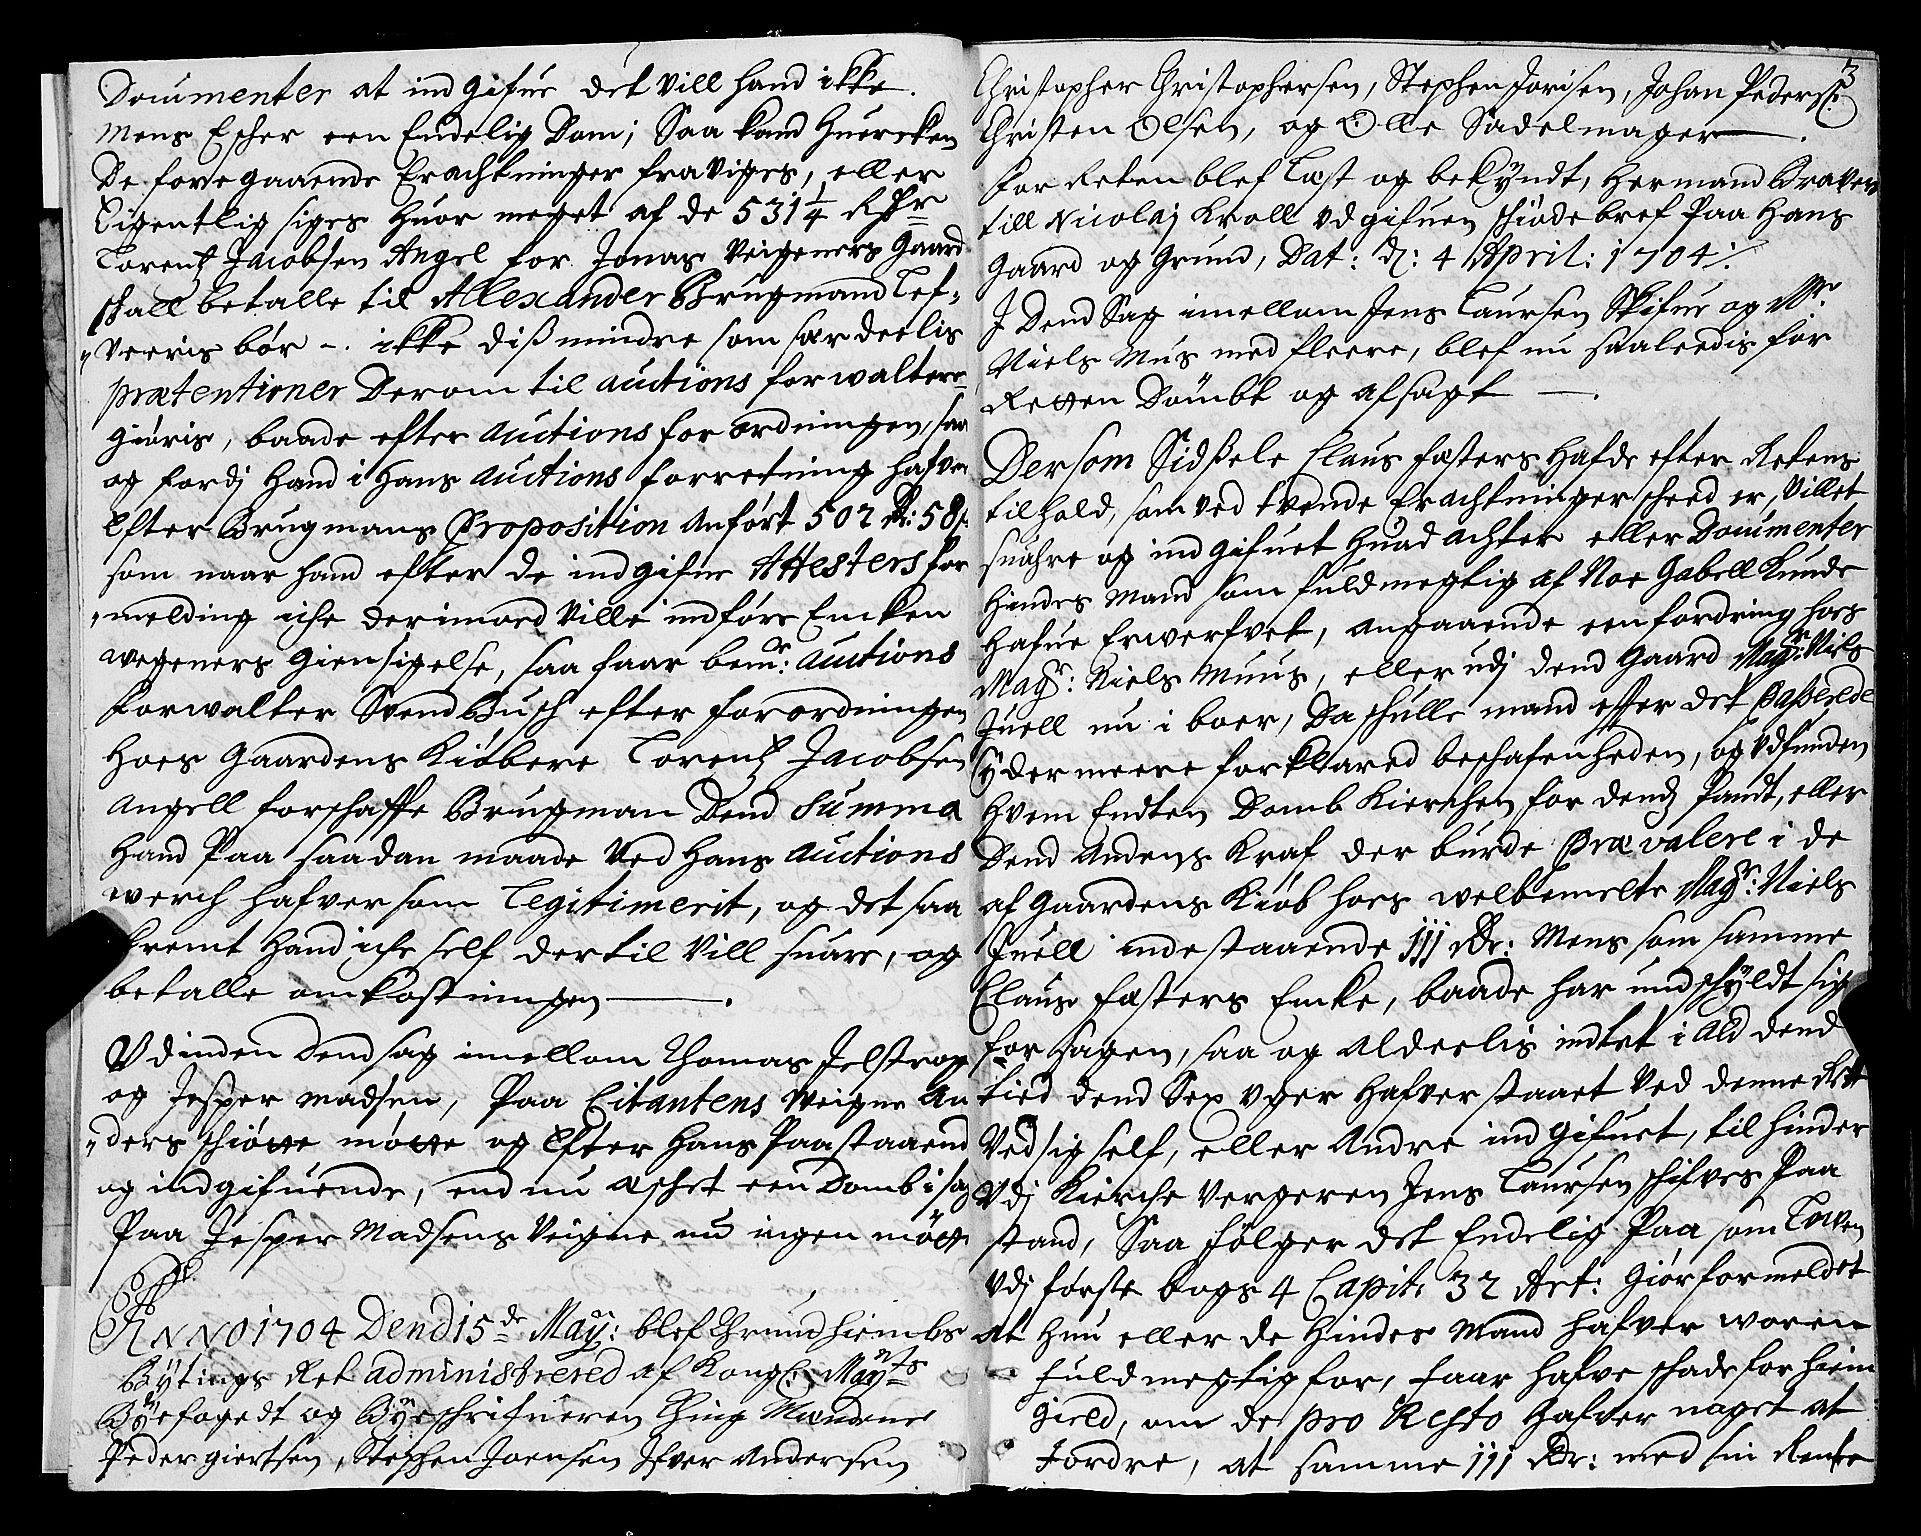 Documenter at ind gifue det vill hand ikke.
Mens Escher een Endelig Dom; Saa kand huercken
De forregaaende Erachtninger fraviges, eller
Eigentlig siges huor meget af de 531¼ Rdr
Lorentz Jacobsen Angel for Jonas Veigeners Gaard
skall betalle til Alexander Brugmand lef-
veeris bør -. ikke diß mindre som særdeelis
prætentioner Derom til auctions forwaltere
giøris, baade efter Auctions forordningen, saa
og fordj hand i hans auctions forretning hafver
Efter Brugmans Proposition Anført 502 Rd: 58 s
som naar hand efter de indgifne Attesters for
melding iche derimod ville indføre Encken
wegeners giensigelse, saa faar bemr: Auctions
forwalter Svend Busch efter forordningen
hoes gaardens Kiøbere Lorentz Jacobsen
Angell forschaffe Brugman Dend Summa
hand Paa saadan maade Ved hans auctions
werch hafver som Legitimerit, og det saa
fremt hand iche self dertil vill suare, og
betalle omkostningen.
Udinden Dend sag imellom Thomas Jelstrop
og Jesper Madsen, Paa Citantens Veigne An
ders schiøtte møtte og Efter hans Paastaaend
og indgifuende, end nu æschet een Domb i sag
Paa Jesper Madsens Veigne nu ingen møtte
ANNO 1704 Dend 15de Maij: blef Thrundhiembs
Bytings Ret administrered af Kongl: Mayts
Byefogedt og Byeschrifueren Ting Mændene
Peder giertsen, Stephen Joensen Ifver Andersen
3
Christopher Christophersen, Stephen Jorisen, Johan Peders:
Christen Olsen, og Olle Sadelmager.
For Reten blef Læst og bekyndt, Hermand Braven
till Nicolaj Kroll udgifuen schiøde bref Paa Hans
Gaard og Grund, Dat: d: 4 April: 1704 ./.
J Dend Sag imellom Jens Laursen Skifue og Mr
Niels Mus med fleere, blef nu saaleedis for
Retten Dømbt og afsagt.
Dersom Sidßele Claus fasters hafde efter Retens
tilhold, som ved tvende Erachtninger scheed er, villet
suahre og indgifuet huad achter eller Documenter
hindes mand som fuldmegtig af Noe Gabell kunde
hafue Erwerfvet, angaaende een fordring hoes
Magr: Niels Muus, eller udj dend Gaard Magr: Niels
Juell nu i boer, Da schulle mand efter det Passerede
Ydermeere forklared beschafenheden, og udfunden
hvem Endten Domb Kierchen for dend Pandt, eller
Dend Andens Kraf der burde Prævalere i de
af Gaardens Kiøb hoes welbemelte Magr: Niels
Juell indestaaende jjj Rdr: Mens som samme
Claus fasters Encke, baade har undschyldt sig
for sagen, saa og alderlis indtet i ald dend
tied dend Sex uger hafver staaet ved denne Rett
ved sig self, eller Andre indgifuet, til hinder
Udj Kierche vergeren Jens Laursen schifves Paa
stand, Saa følger det Endelig Paa som Lowen
udj første bogs 4 Capit: 32 Art: giør formeldet
At hun eller de hindes mand hafver woren
fuldmegtig for, faar hafve schade for hiem
gield, om de pro Resto hafver noget at
fordre, at samme jjj Rdr: med sin Rente